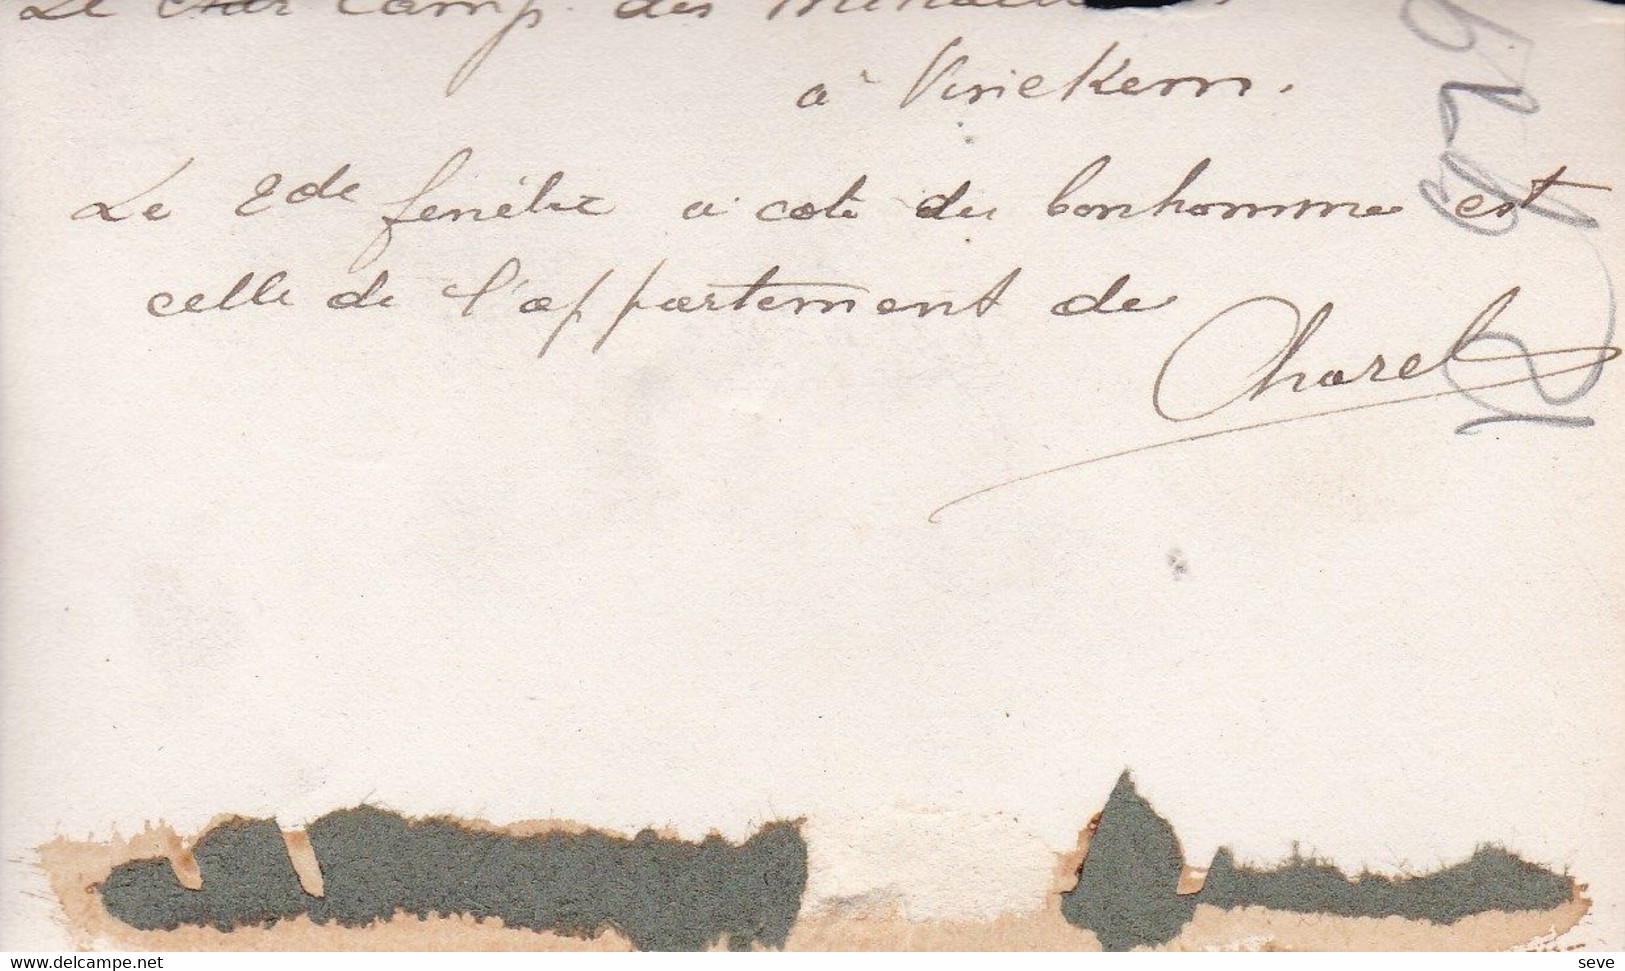 Le Camp. des
à Vinckem.
Le 2de fenêtre a coté du bonhomme est
celle de l'appartement de
Charel
www.delcampe.net
seve